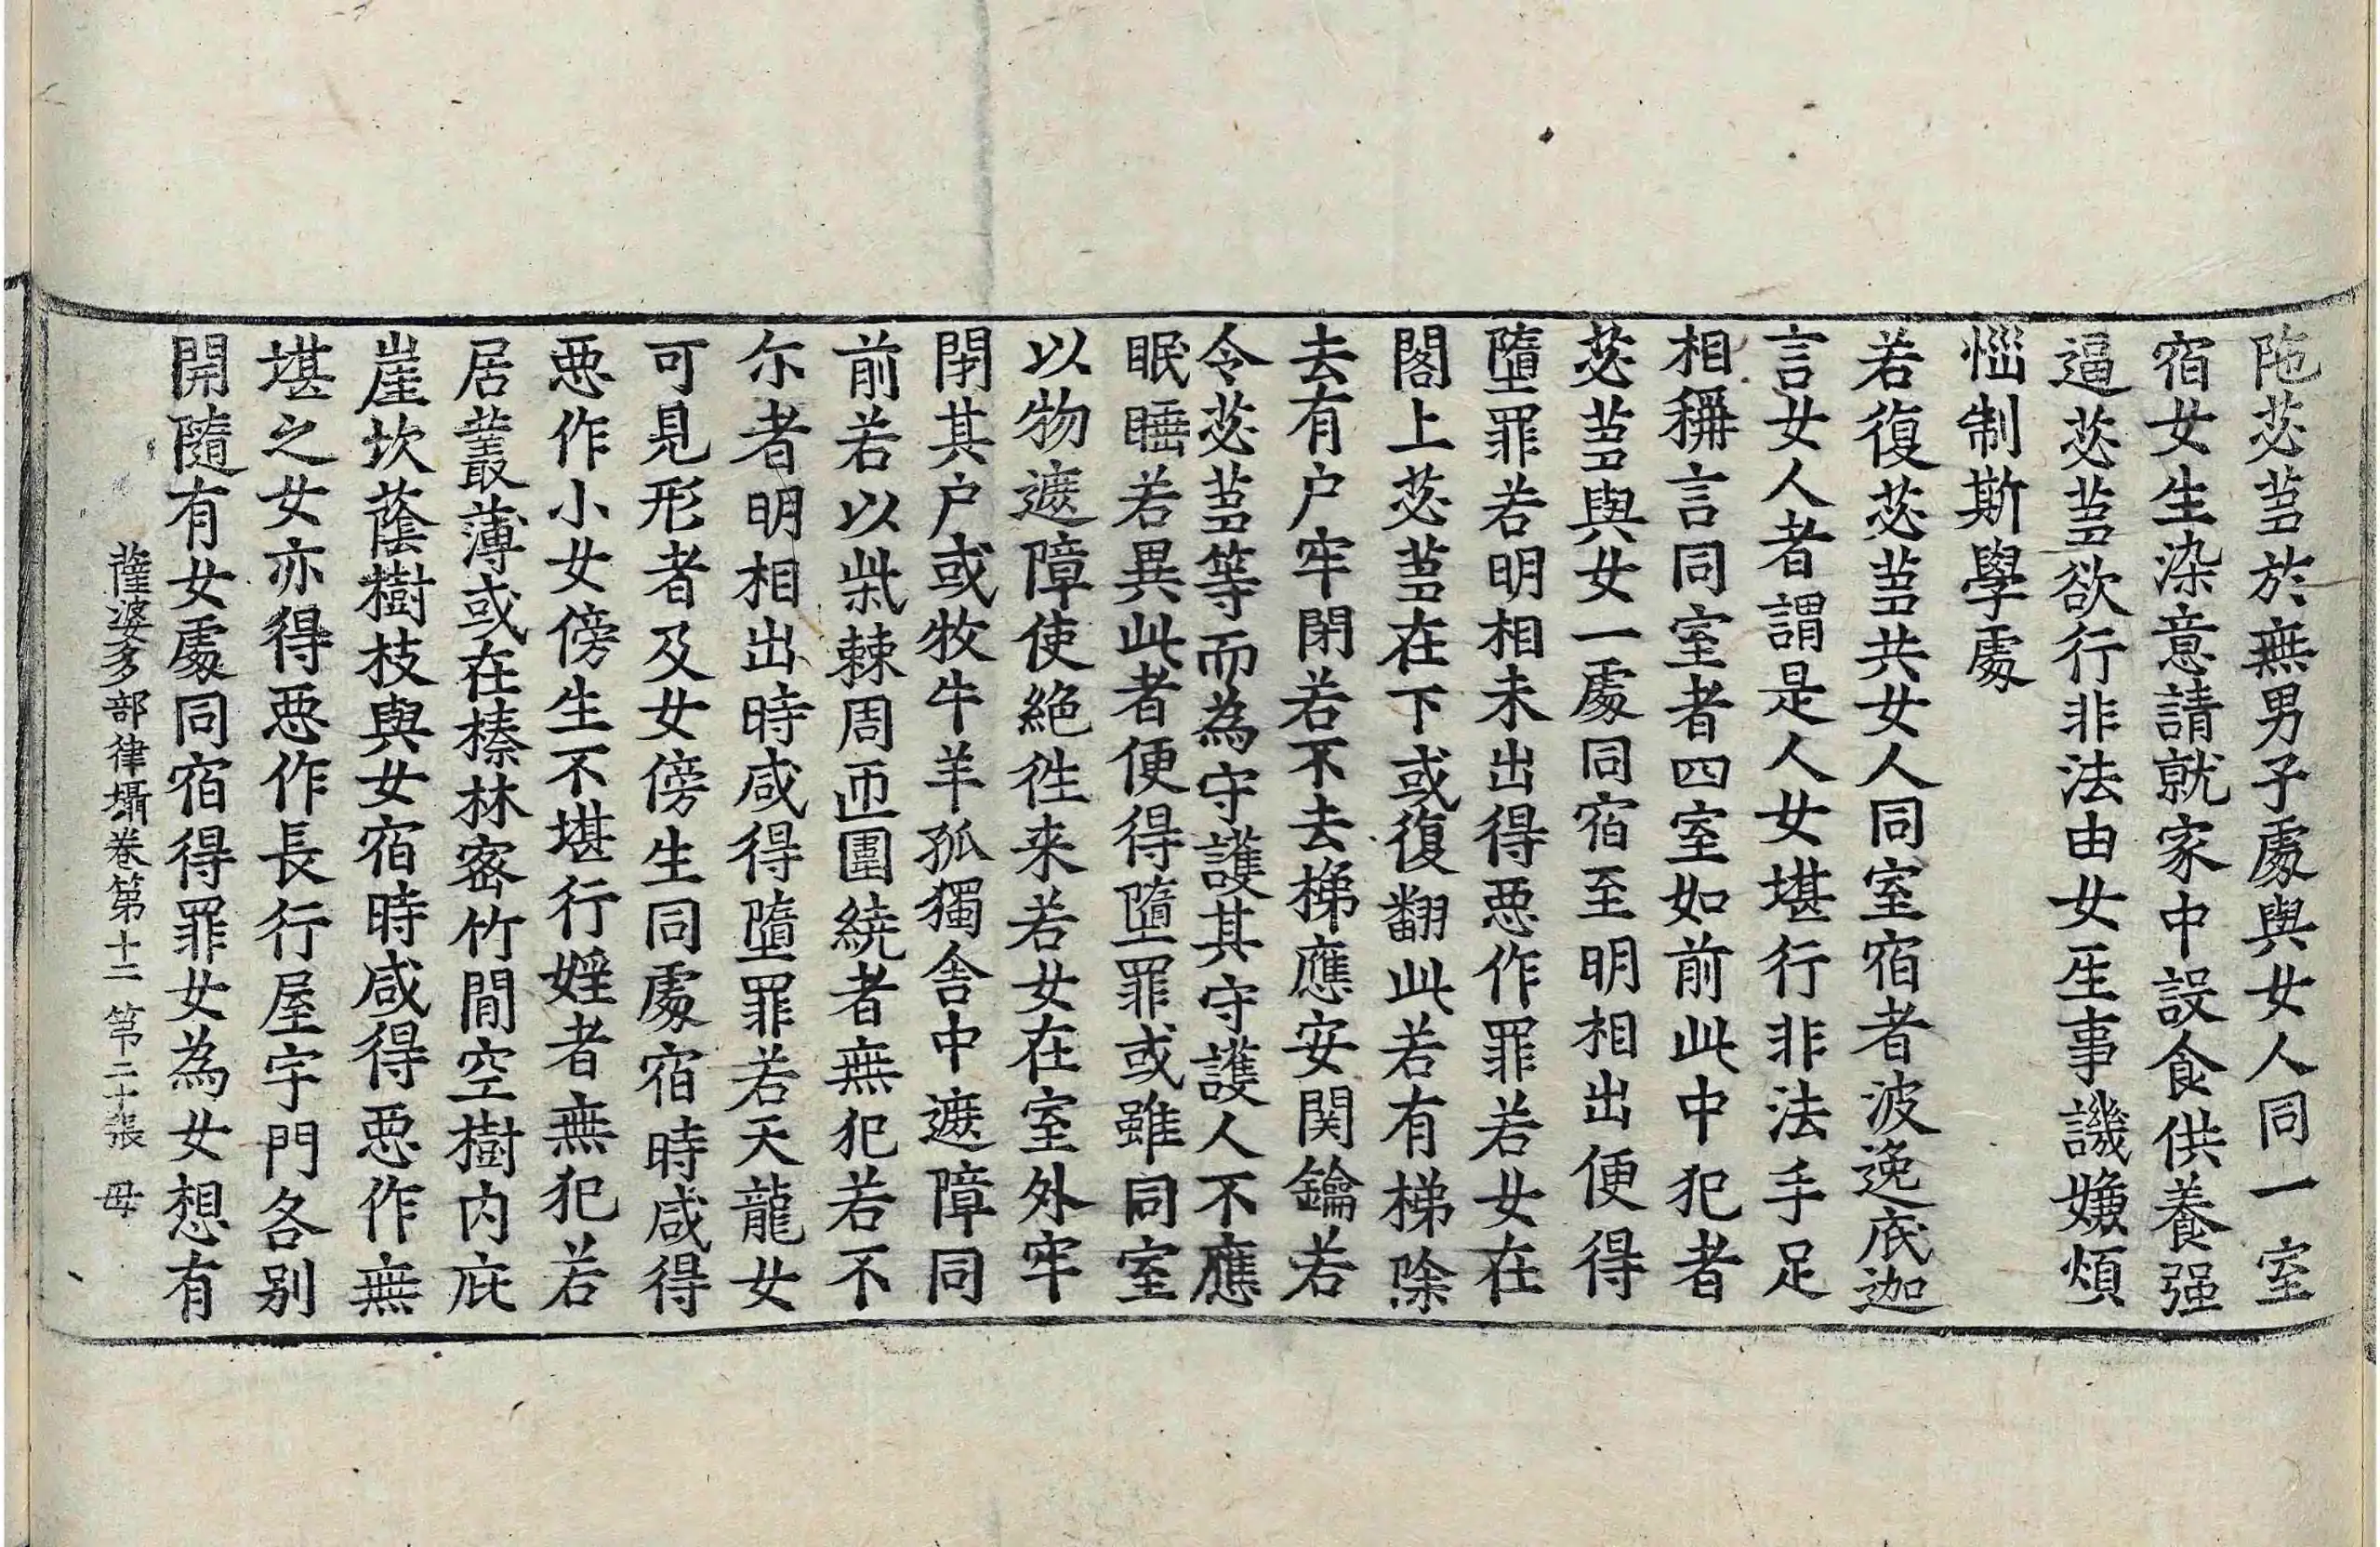 陁苾蒭於無男子處與女人同一室
宿女生染意請就家中設食供養强
逼苾蒭欲行非法由女生事譏嫌煩
惱制斯學處
若復苾蒭共女人同室宿者波逸底迦
言女人者謂是人女堪行非法手足
相稱言同室者四室如前此中犯者
苾蒭與女一處同宿至明相出便得
墮罪若明相未出得惡作罪若女在
閣上苾蒭在下或復翻此若有梯除
去有户牢閉若不去梯應安関鑰若
令苾蒭等而為守護其守護人不應
眠睡若異此者便得墮罪或雖同室
以物遮障使絕徃来若女在室外牢
閉其户或牧牛羊孤獨舍中遮障同
前若以柴棘周帀圍繞者無犯若不
尒者明相出時咸得墮罪若天龍女
可見形者及女傍生同處宿時咸得
惡作小女傍生不堪行婬者無犯若
居叢薄或在榛林密竹間空樹内庇
崖坎蔭樹枝與女宿時咸得惡作無
堪之女亦得惡作長行屋宇門各别
開隨有女處同宿得罪女為女想有
薩婆多部律攝卷第十二 第二十張 毋